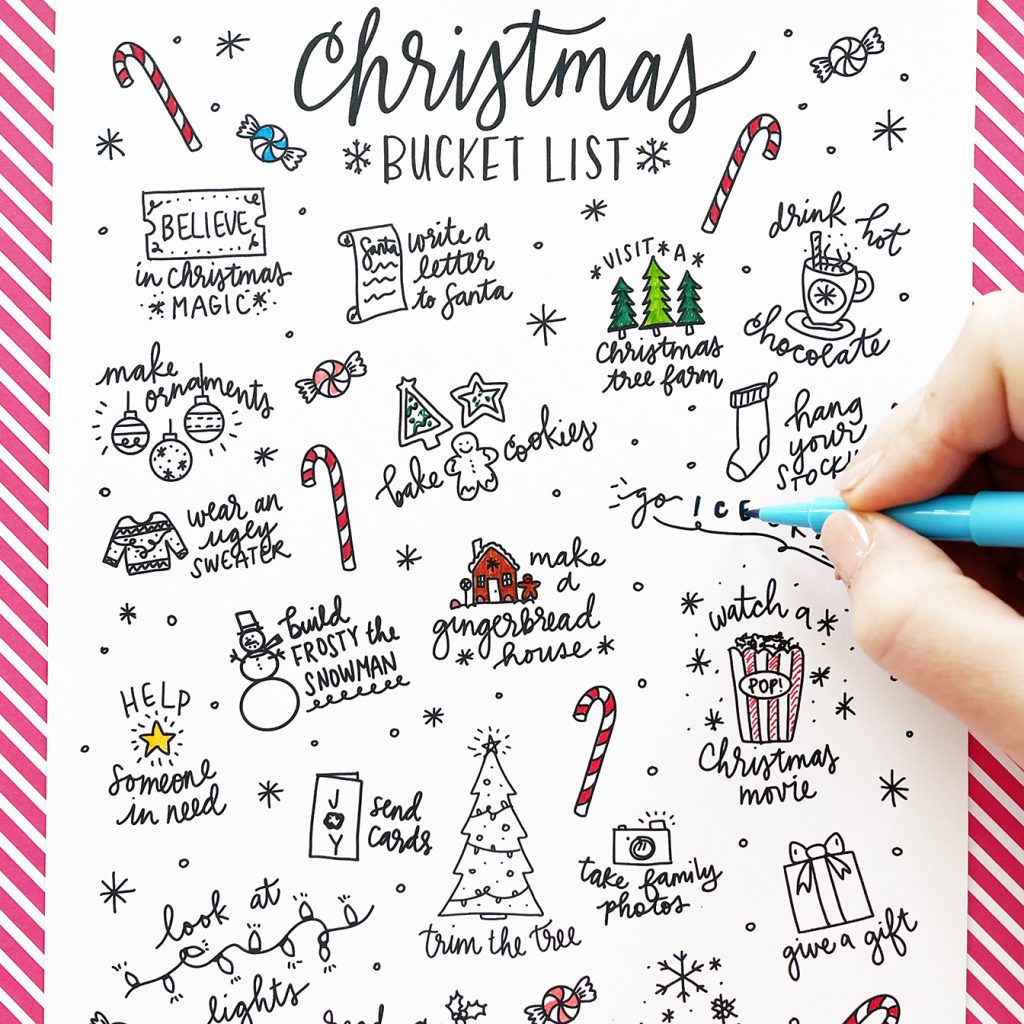 Christmas
BUCKET LIST
BELIEVE
in Christmas
MAGIC
Santa
write a
letter
to Santa
VISIT A
Christmas
tree farm
drink hot
chocolate
make
ornaments
bake cookies
hang
your
wear an
ugly
SWEATER
go ICE
make
a
gingerbread
house
build
FROSTY the
SNOWMAN
watch a
POP!
Christmas
movie
HELP
Someone
in need
J
Y
send
cards
trim the tree
take family
photos
give a gift
look at
lights